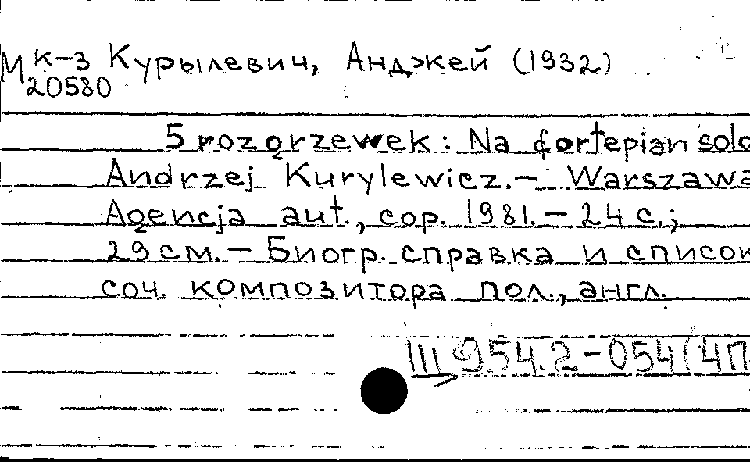 М к-з Курылевич, Анджей (1932)
20580
5 rozgrzewek: Na fortepian solo
Andrzej Kurylewicz.– Warszawa
Agencja aut., cop. 1981.– 24 с.;
29 см.– Биогр. справка и список
соч. композитора пол., англ.
III 954.2-054(4П